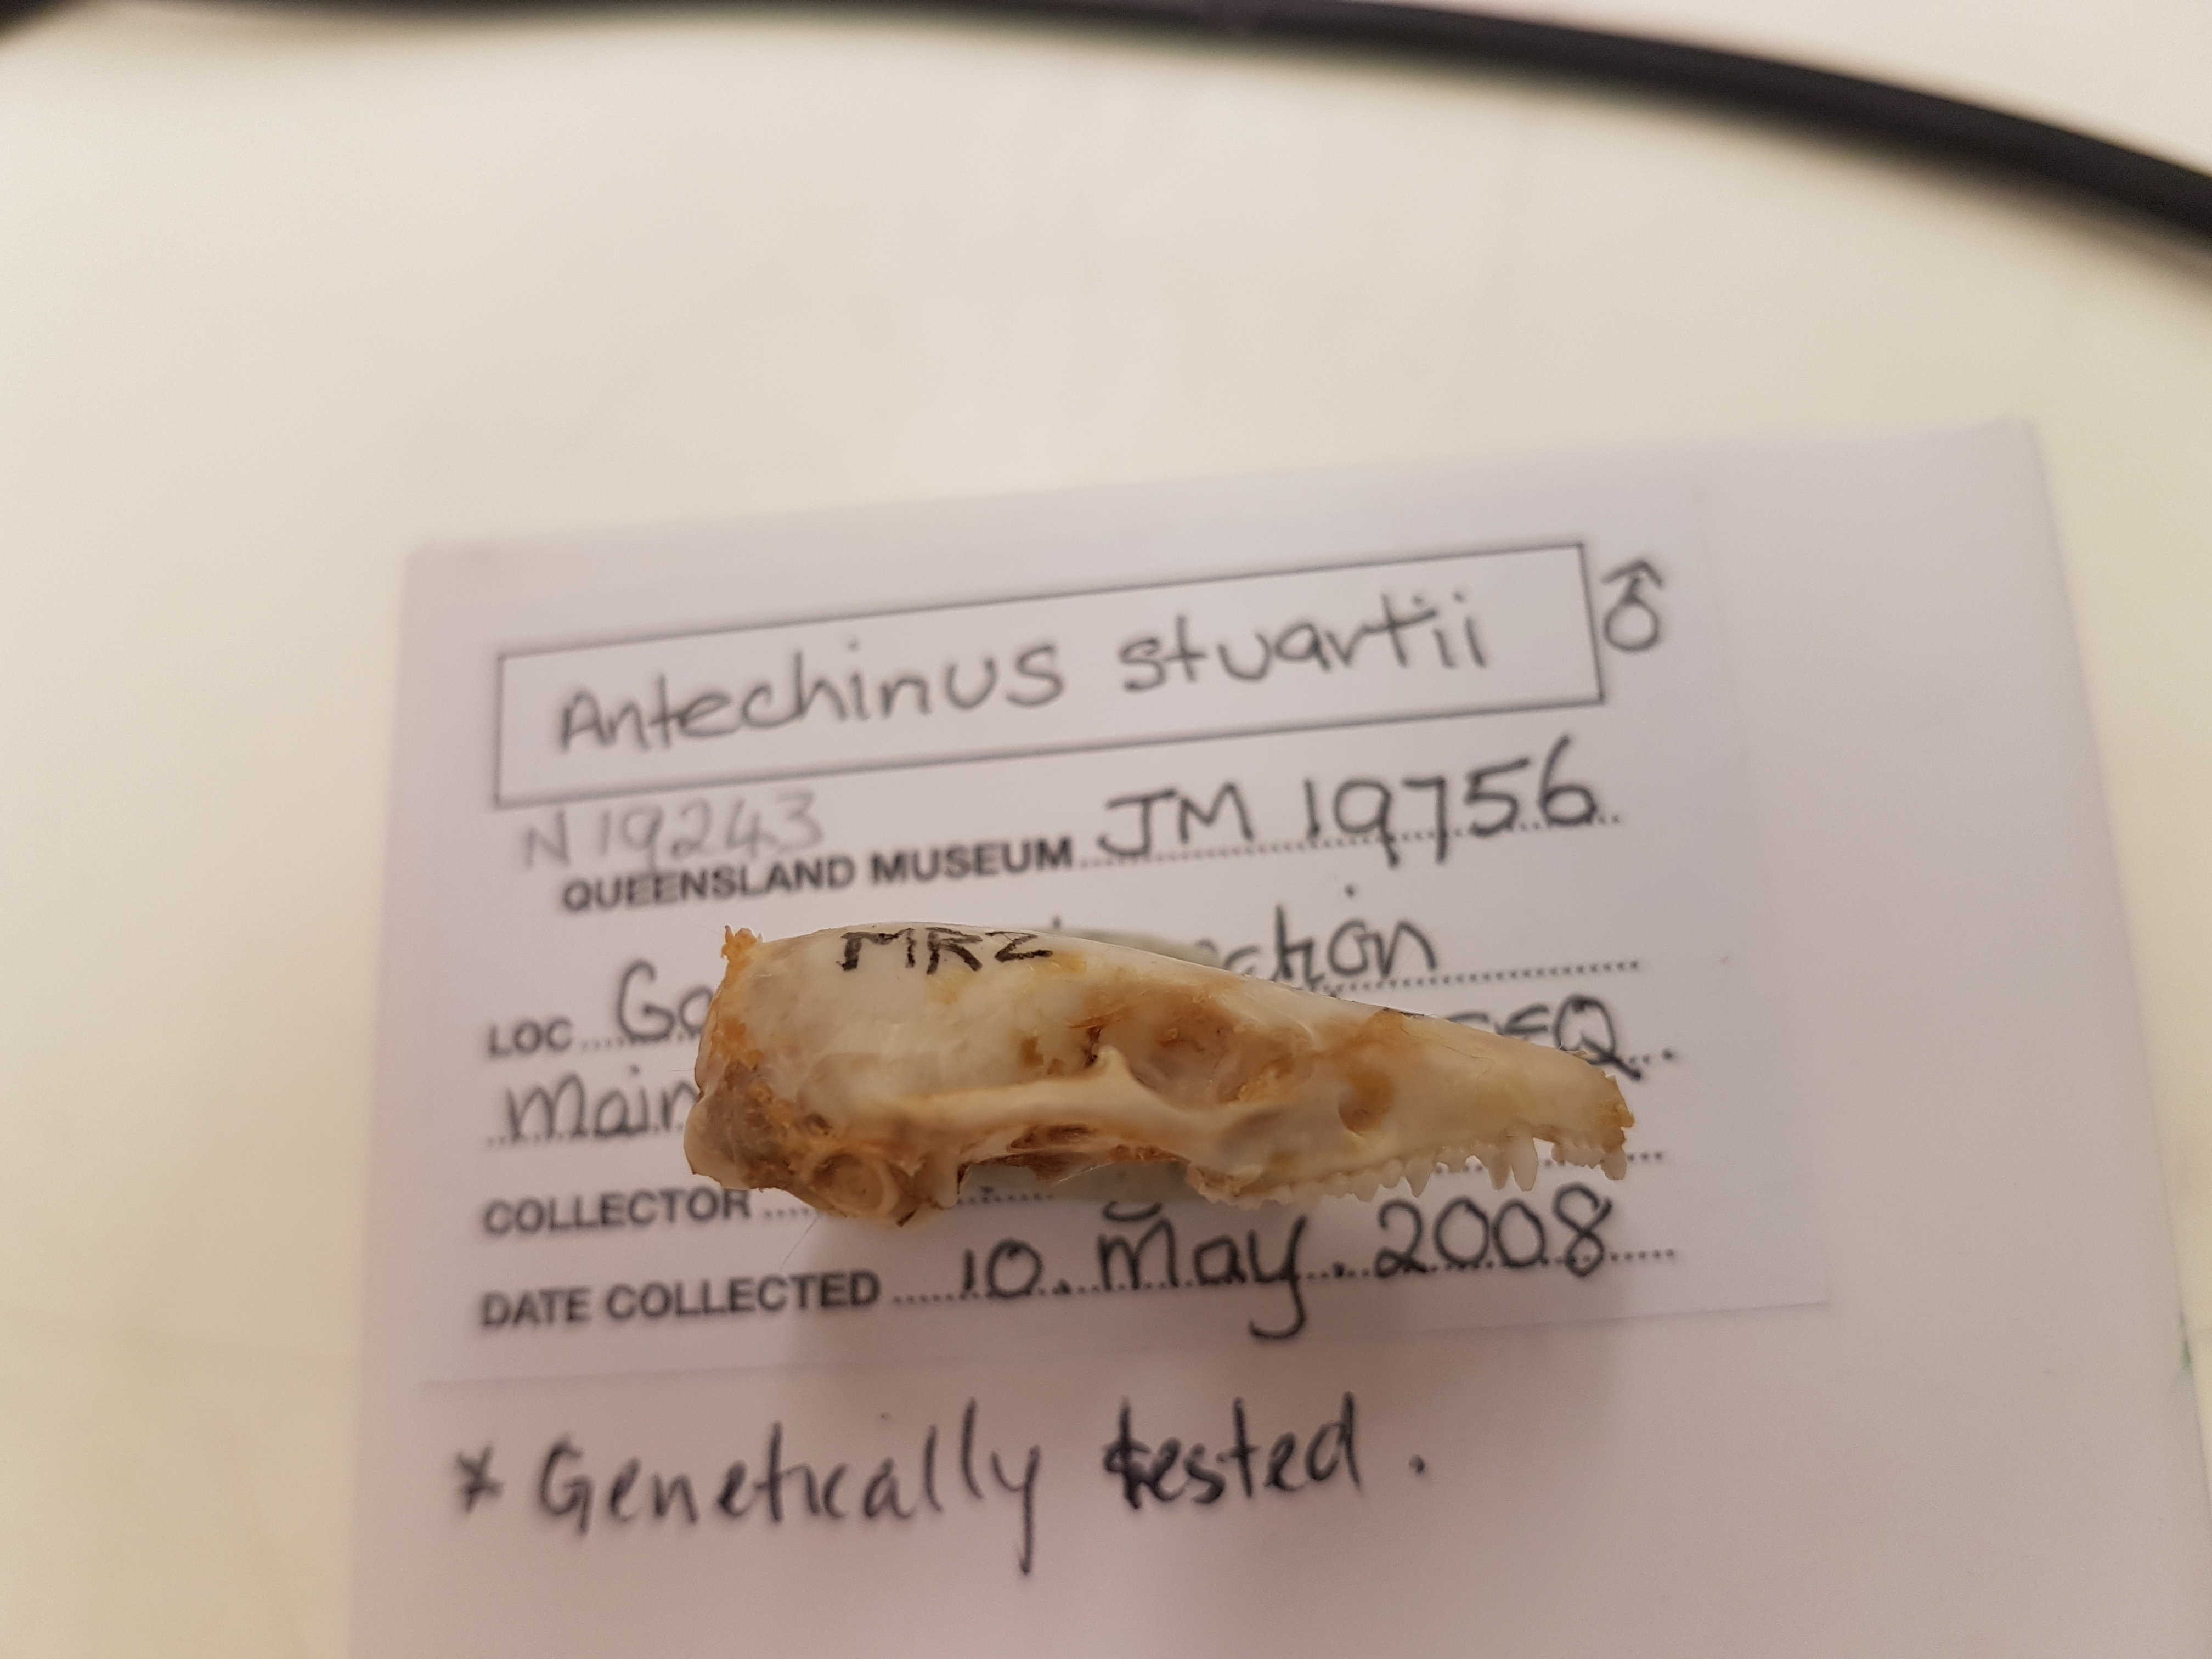 Antechinus stuartii ♂
N19243
QUEENSLAND MUSEUM JM 19756
LOC
COLLECTOR
DATE COLLECTED 10 May 2008
* Genetically tested.
MR2